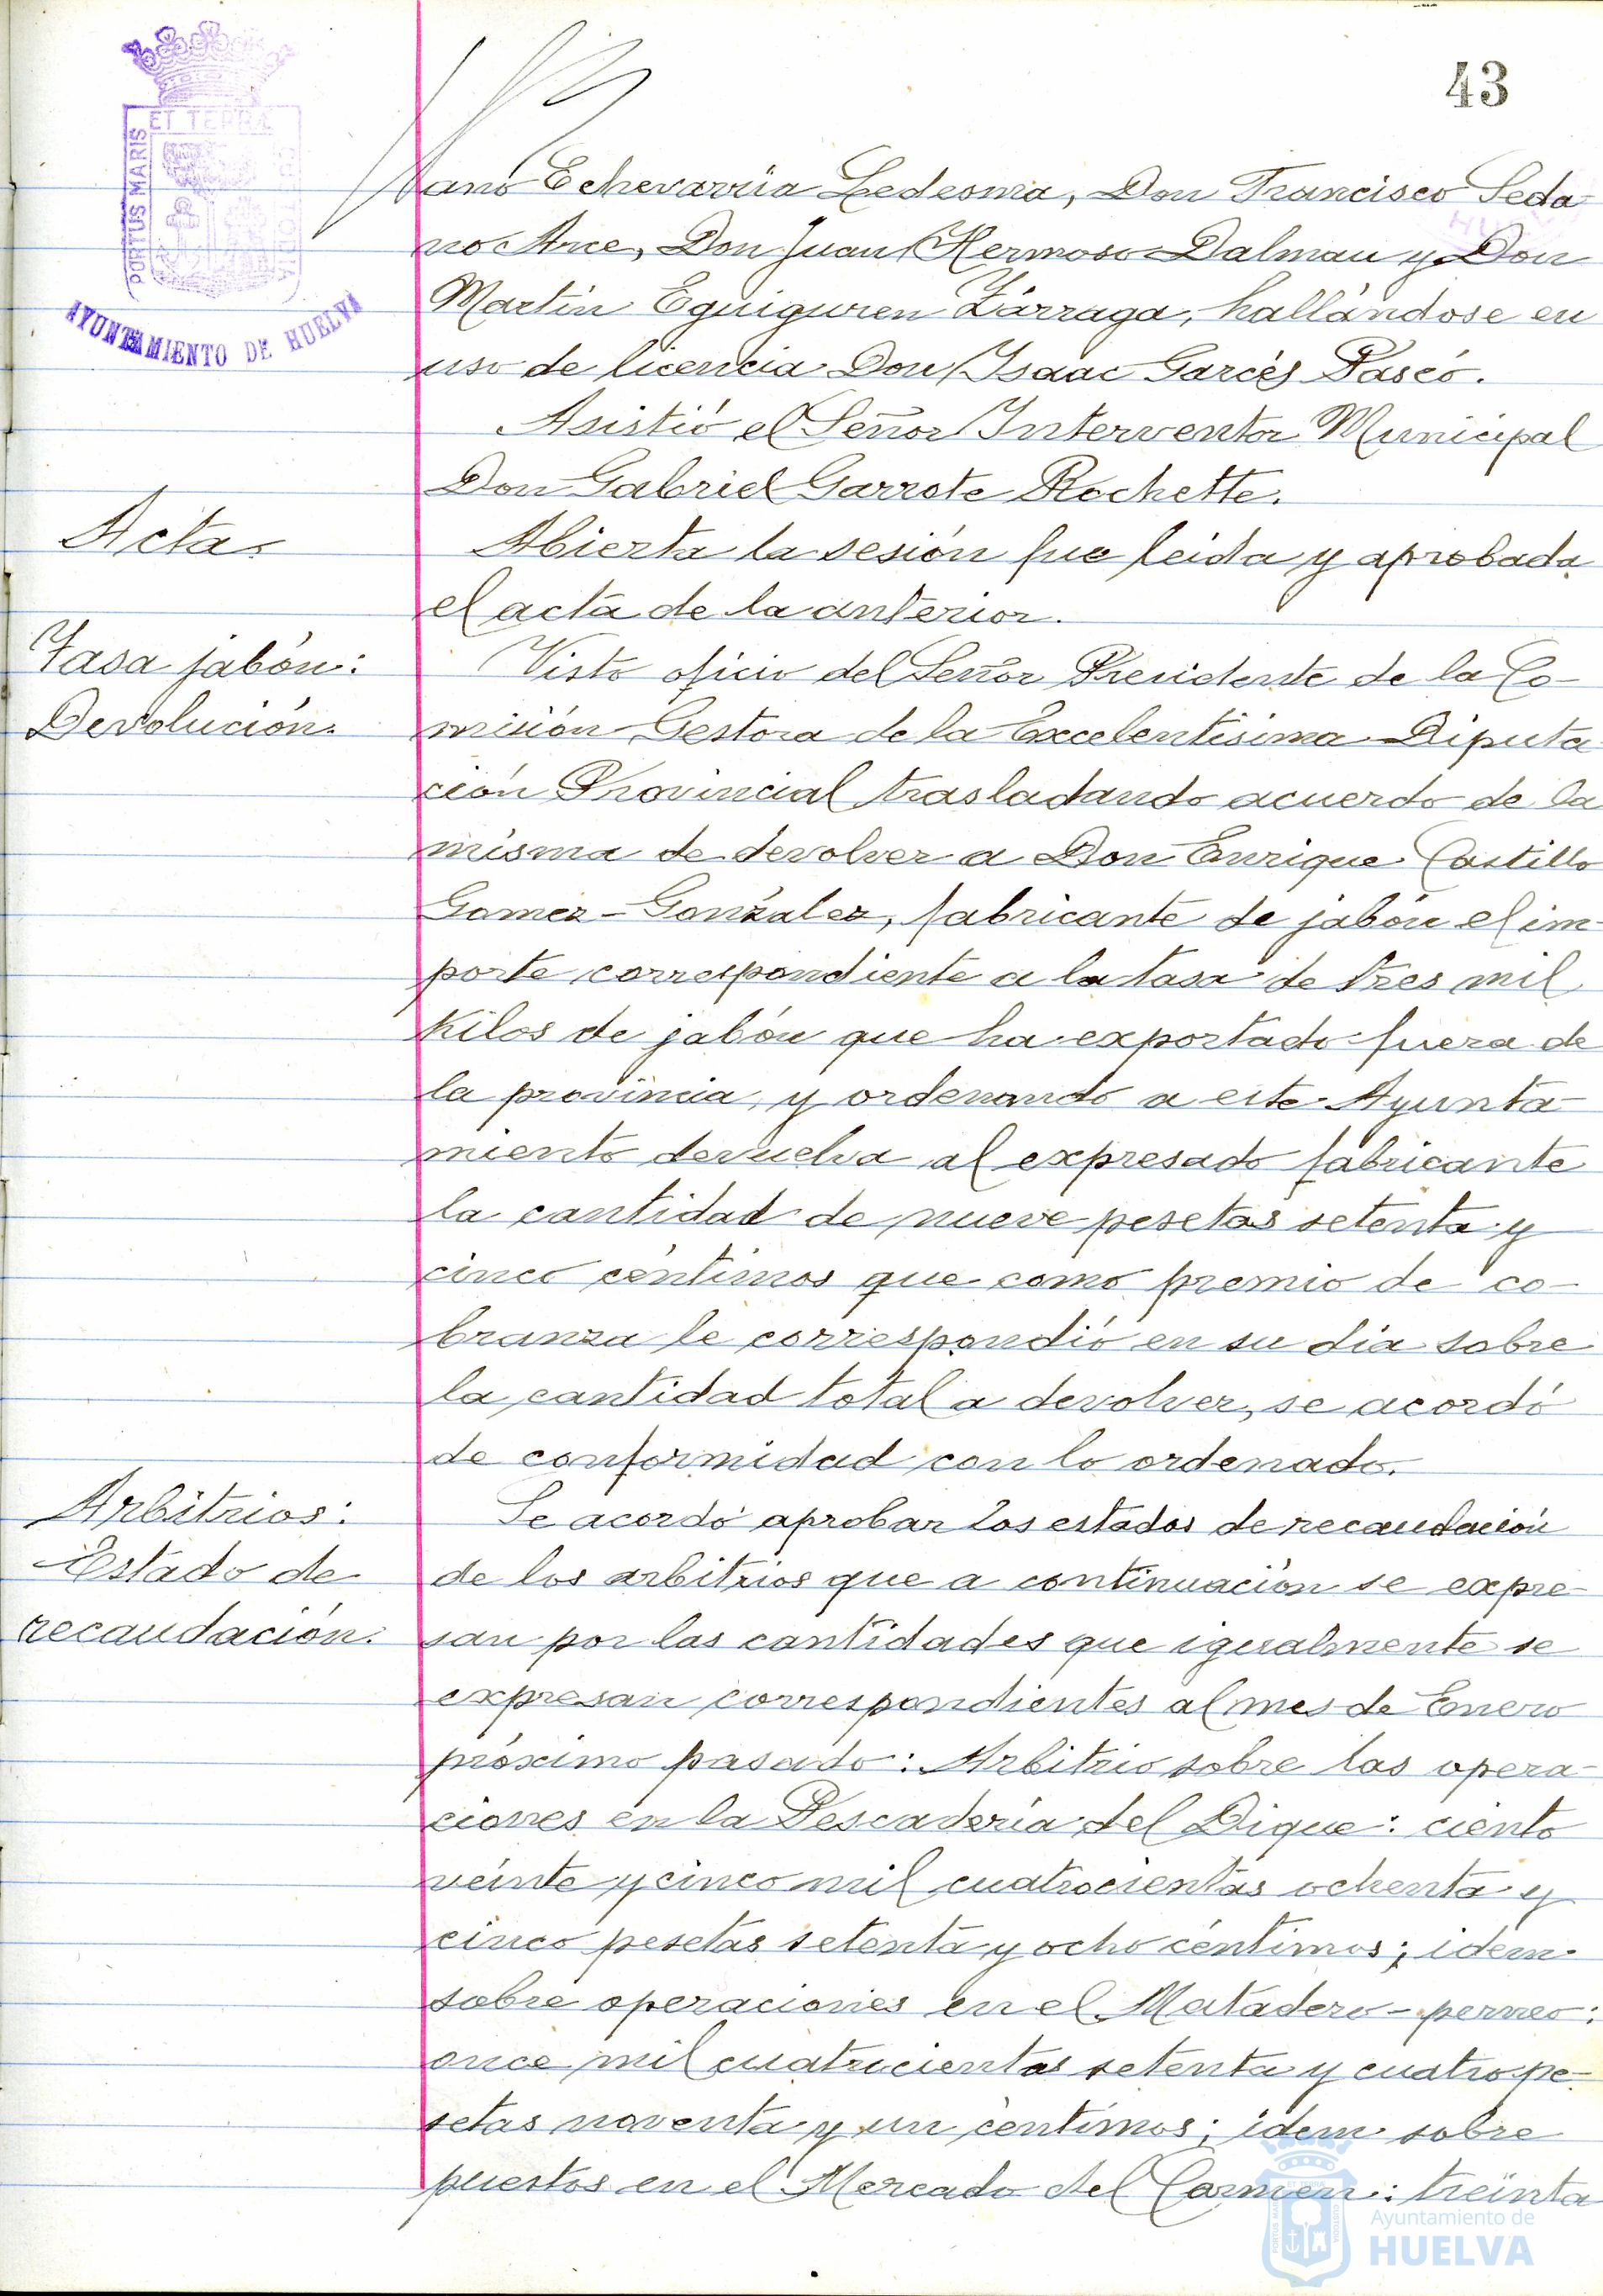 43
ET TERRÆ
PORTUS MARIS
AYUNTAMIENTO DE HUELVA
ano Echevarría Ledesma, Don Francisco Seda-
no Arce, Don Juan Hermoso Dalmau y Don
Martín Eguiguren Zárraga, hallándose en
uso de licencia Don Isaac Garcés Pascó.
Asistió el Señor Interventor Municipal
Don Gabriel Garrote Rochette.
Acta.
Abierta la sesión fue leida y aprobada
el acta de la anterior.
Tasa jabón:
Devolución.
Visto oficio del Señor Presidente de la Co-
misión Gestora de la Excelentísima Diputa-
ción Provincial trasladando acuerdo de la
misma de devolver a Don Enrique Castillo
Gomez-González, fabricante de jabón el im-
porte correspondiente a la tasa de tres mil
kilos de jabón que ha exportado fuera de
la provincia, y ordenando a este Ayunta-
miento devuelva al expresado fabricante
la cantidad de nueve pesetas setenta y
cinco céntimos que como premio de co-
branza le correspondió en su día sobre
la cantidad total a devolver, se acordó
de conformidad con lo ordenado.
Arbitrios:
Estado de
recaudación.
Se acordó aprobar los estados de recaudación
de los arbitrios que a continuación se expre-
san por las cantidades que igualmente se
expresan correspondientes al mes de Enero
próximo pasado: Arbitrio sobre las opera-
ciones en la Pescadería del Dique: ciento
veinte y cinco mil cuatrocientas ochenta y
cinco pesetas setenta y ocho céntimos; idem
sobre operaciones en el Matadero-perneo:
once mil cuatrocientas setenta y cuatro pe-
setas noventa y un céntimos; idem sobre
puestos en el Mercado del Carmen: treinta
Ayuntamiento de
HUELVA